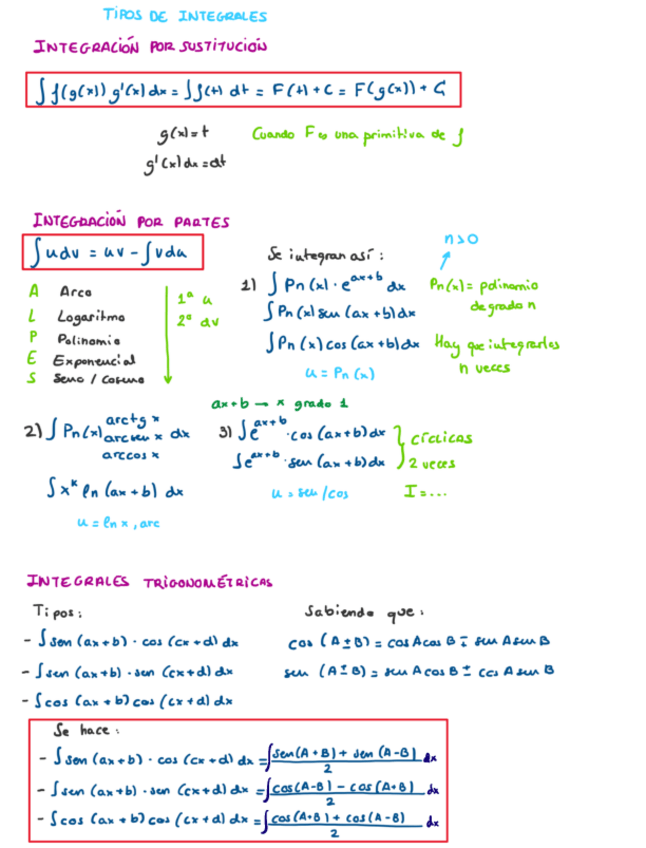 TIPOS DE INTEGRALES
INTEGRACIÓN POR SUSTITUCIÓN
∫f(g(x)) g'(x) dx = ∫f(t) dt = F(t) + C = F(g(x)) + C
g(x) = t Cuando F es una primitiva de f
g'(x) dx = dt
INTEGRACIÓN POR PARTES
∫u dv = uv - ∫v du
A Arco
L Logaritmo
P Polinomio
E Exponencial
S Seno / Coseno
1º u
2º dv
Se integran así:
n>0
1) ∫Pn(x) · e^(ax+b) dx Pn(x) = polinomio de grado n
∫Pn(x) sen (ax+b) dx
∫Pn(x) cos (ax+b) dx Hay que integrarlos n veces
u = Pn(x)
ax+b → x grado 1
2) ∫Pn(x) arctg x / arcsen x / arccos x dx
∫x^k ln (ax+b) dx
u = ln x, arc
3) ∫e^(ax+b) · cos (ax+b) dx
∫e^(ax+b) · sen (ax+b) dx
cíclicas
2 veces
u = sen/cos I = ...
INTEGRALES TRIGONOMÉTRICAS
Tipos:
- ∫sen (ax+b) · cos (cx+d) dx
- ∫sen (ax+b) · sen (cx+d) dx
- ∫cos (ax+b) cos (cx+d) dx
Sabiendo que:
cos (A±B) = cos A cos B ∓ sen A sen B
sen (A±B) = sen A cos B ± cos A sen B
Se hace:
- ∫sen (ax+b) · cos (cx+d) dx = ∫(sen(A+B) + sen(A-B))/2 dx
- ∫sen (ax+b) · sen (cx+d) dx = ∫(cos(A-B) - cos(A+B))/2 dx
- ∫cos (ax+b) cos (cx+d) dx = ∫(cos(A+B) + cos(A-B))/2 dx